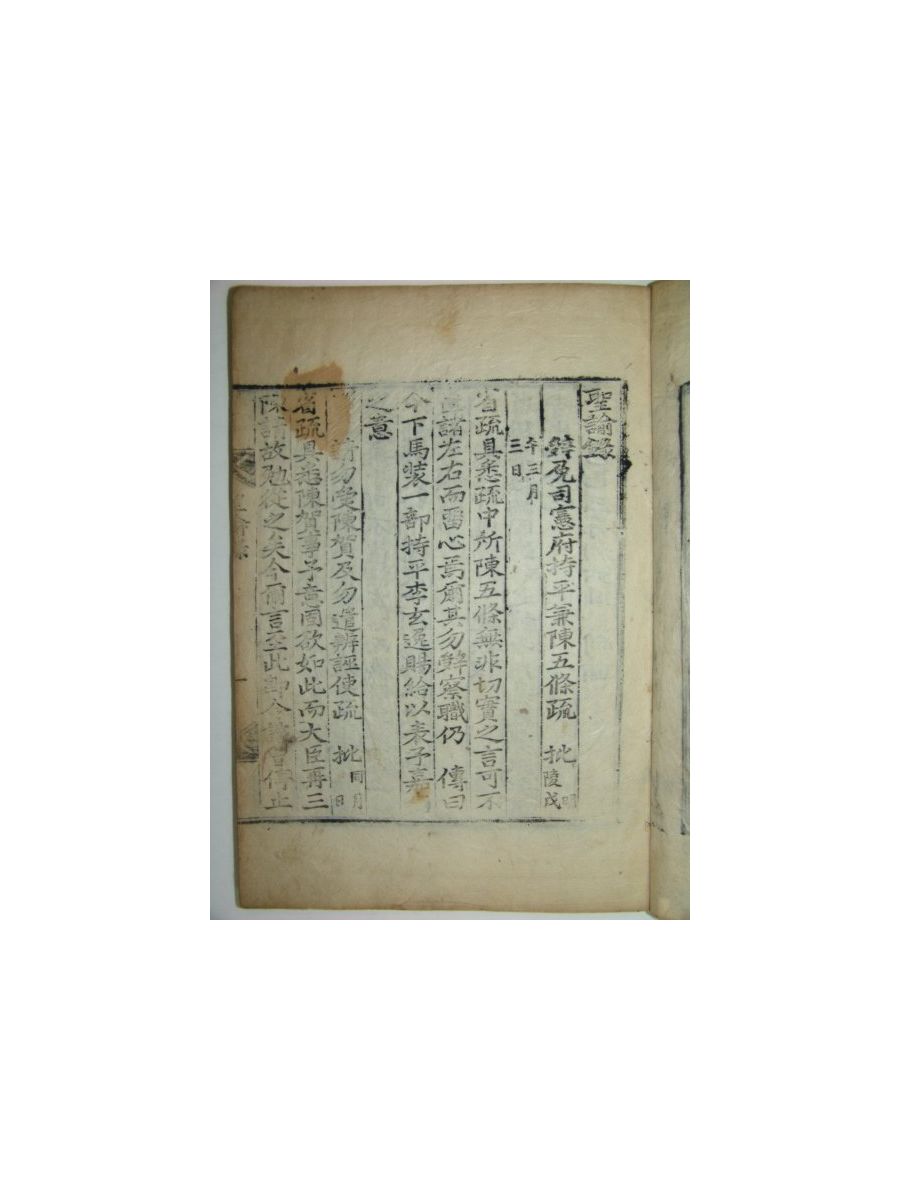 聖諭錄
辭免司憲府持平兼陳五條疏 批 陵戊
午三月
三日
省疏具悉疏中所陳五條無非切實之言可不
諸左右而畱心焉爾其勿辭察職仍 傳曰
今下馬裝一部持平李玄逸賜給以表予嘉
之意
請勿受陳賀及勿遣辨誣使疏 批 同月
日
省疏具悉陳賀事予意固欲如此而大臣再三
陳請故勉從之矣今爾言至此 傳止